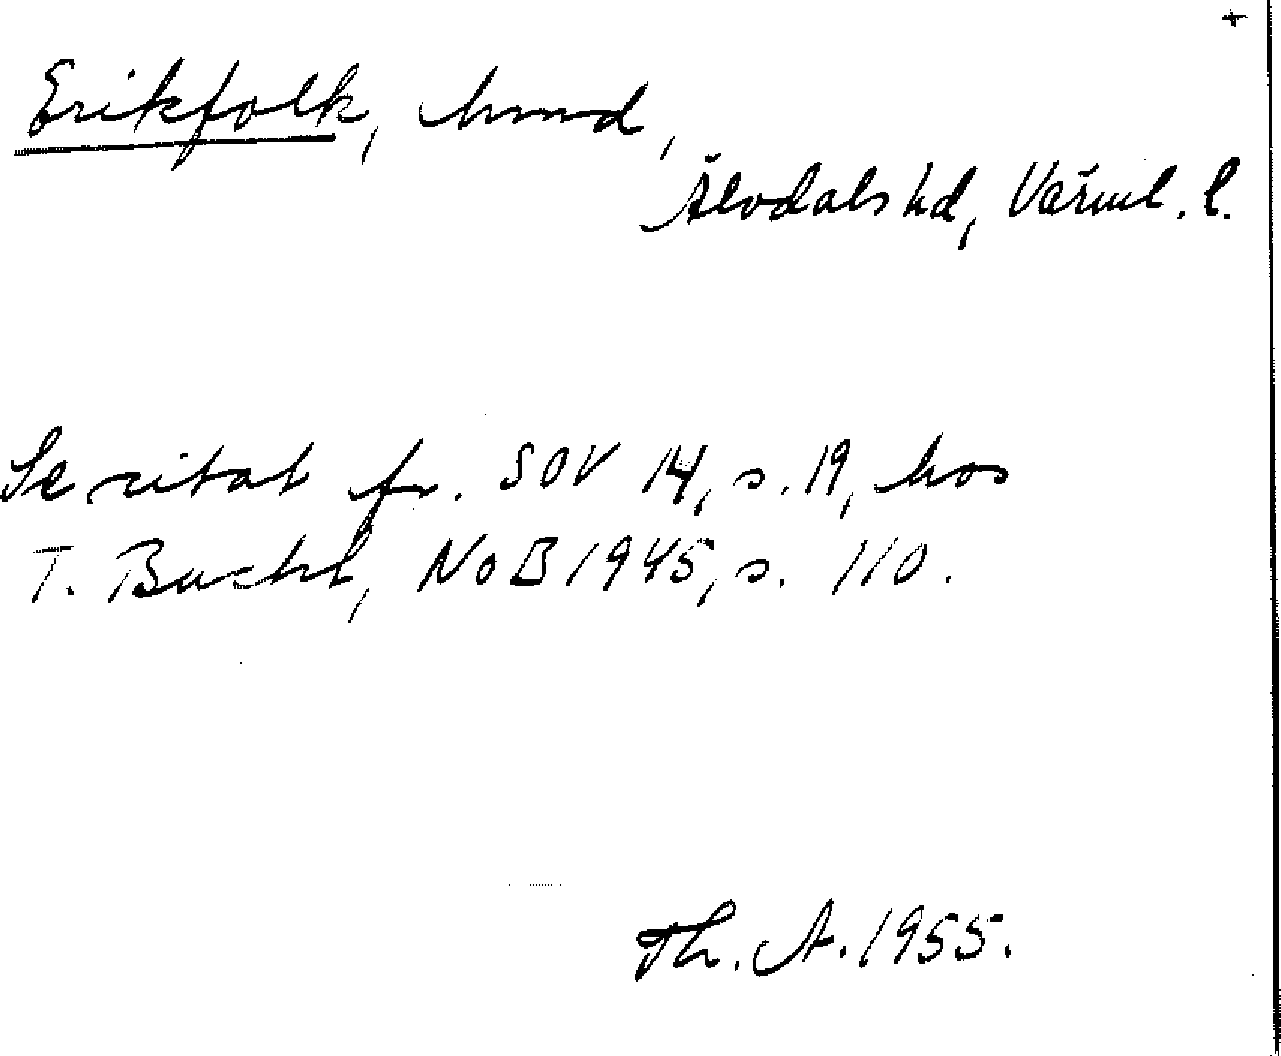 +
Erikfolk, hmd,
Älvdals hd, Värml. l.
Se citat fr. SOV 14, s. 19, hos
T. Bucht, NoB 1945, s. 110.
Th. A. 1955.